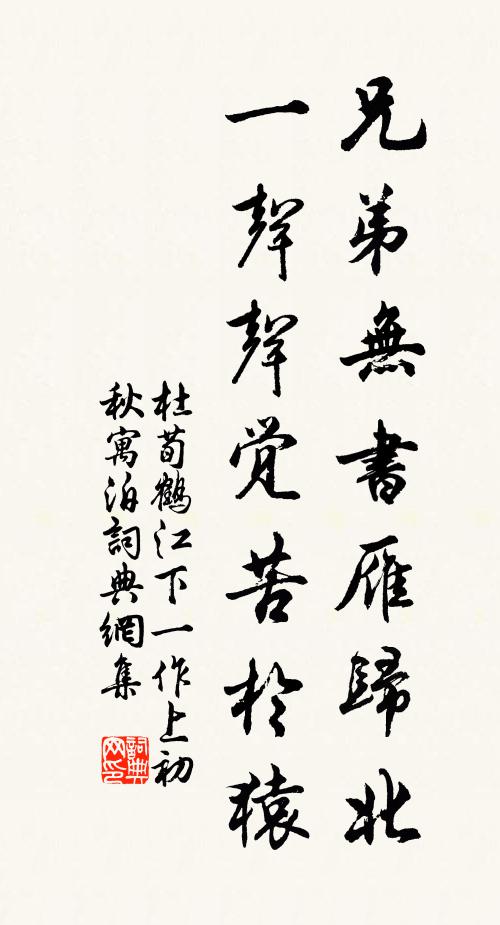 兄弟無書雁歸北
一聲聲覺苦於猿
杜荀鶴江下一作上初
秋寓泊詞典網集
詞典
网印